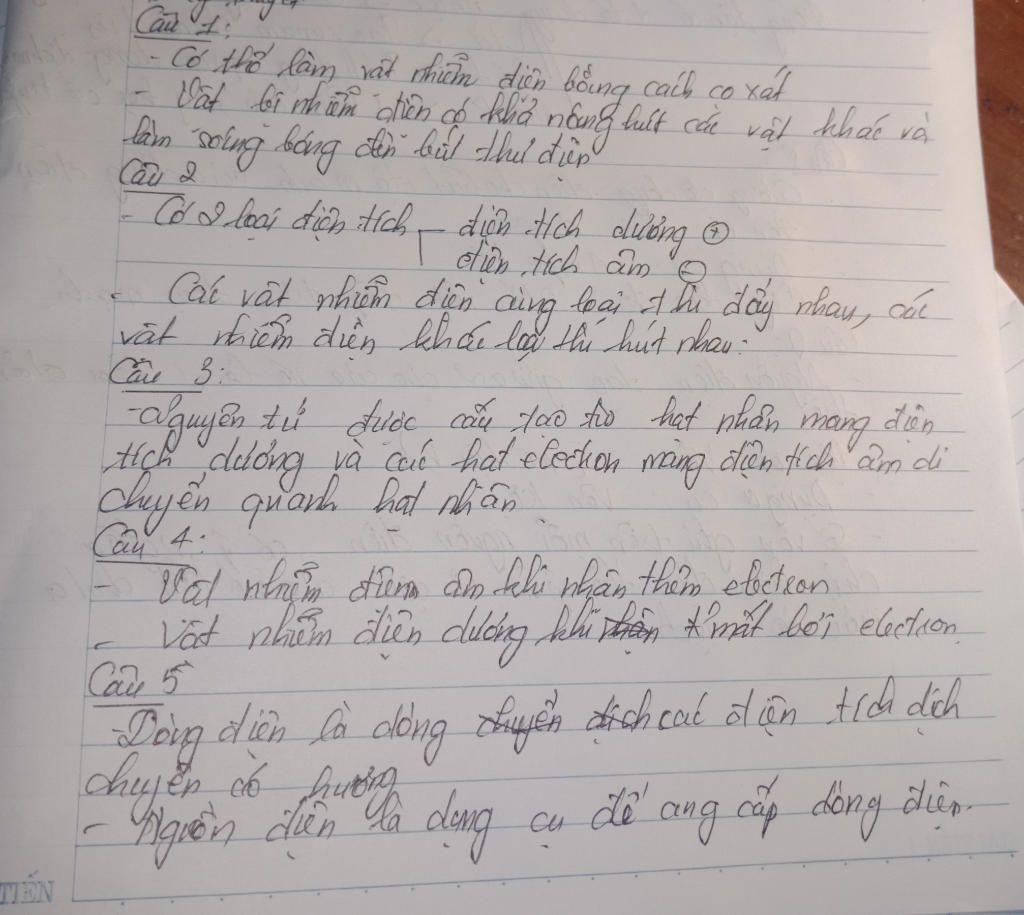 Câu 1:
- Có thể làm vật nhiễm điện bằng cách cọ xát
- Vật bị nhiễm điện có khả năng hút các vật khác và
làm sáng bóng đèn bút thử điện
Câu 2
- Có 2 loại điện tích điện tích dương +
điện tích âm -
- Các vật nhiễm điện cùng loại thì đẩy nhau, các
vật nhiễm điện khác loại thì hút nhau.
Câu 3:
- Nguyên tử được cấu tạo từ hạt nhân mang điện
tích dương và các hạt electron mang điện tích âm di
chuyển quanh hạt nhân
Câu 4:
- Vật nhiễm điện âm khi nhận thêm electron
- Vật nhiễm điện dương khi mất bơi electron.
Câu 5
- Dòng điện là dòng các điện tích dịch
chuyển có hướng
- Nguồn điện là dụng cụ để cung cấp dòng điện.
TIẾN